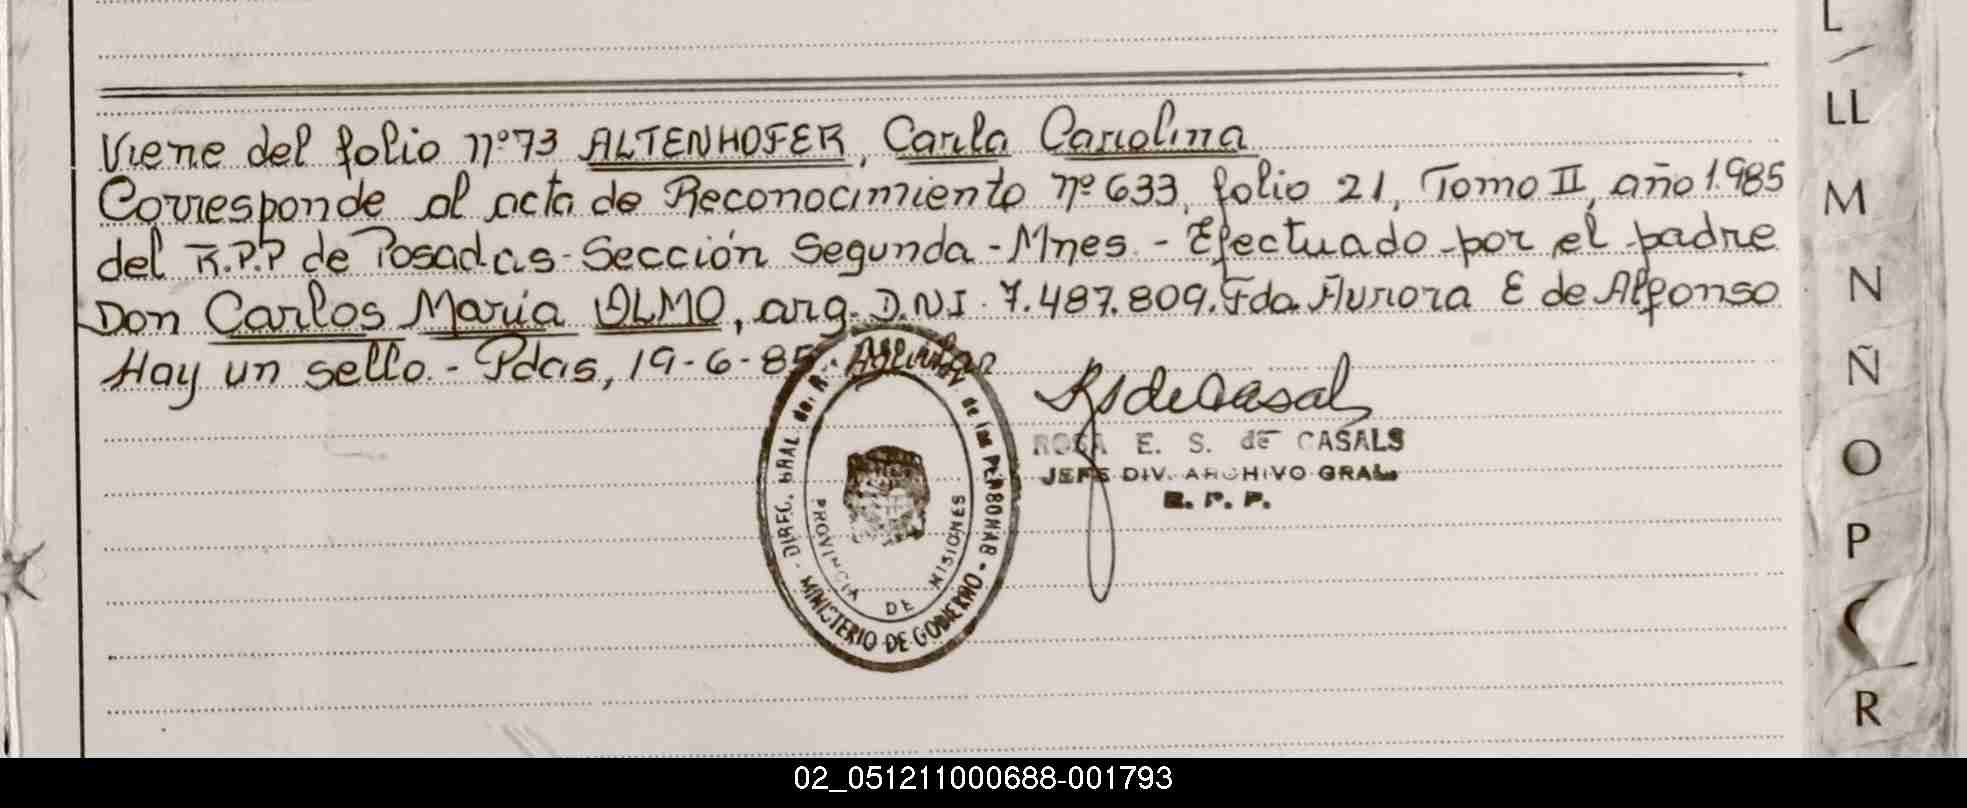 Viene del folio nº 73 ALTENHOFER, Carla Carolina
Corresponde al acta de Reconocimiento nº 633, folio 21, Tomo II, año 1.985
del R.P.P de Posadas - Sección Segunda - Mnes. - Efectuado por el padre
Don Carlos María OLMO, arg. D.N.I. 7.487.809. Fda. Aurora E de Alfonso
Hay un sello. - Pdas, 19-6-85.
ROSA E. S. de CASALS
JEFE DIV. ARCHIVO GRAL.
R. P. P.
DIREC. GRAL. de las PERSONAS - MINISTERIO DE GOBIERNO -
PROVINCIA DE MISIONES
L
LL
M
N
Ñ
O
P
R
02_051211000688-001793